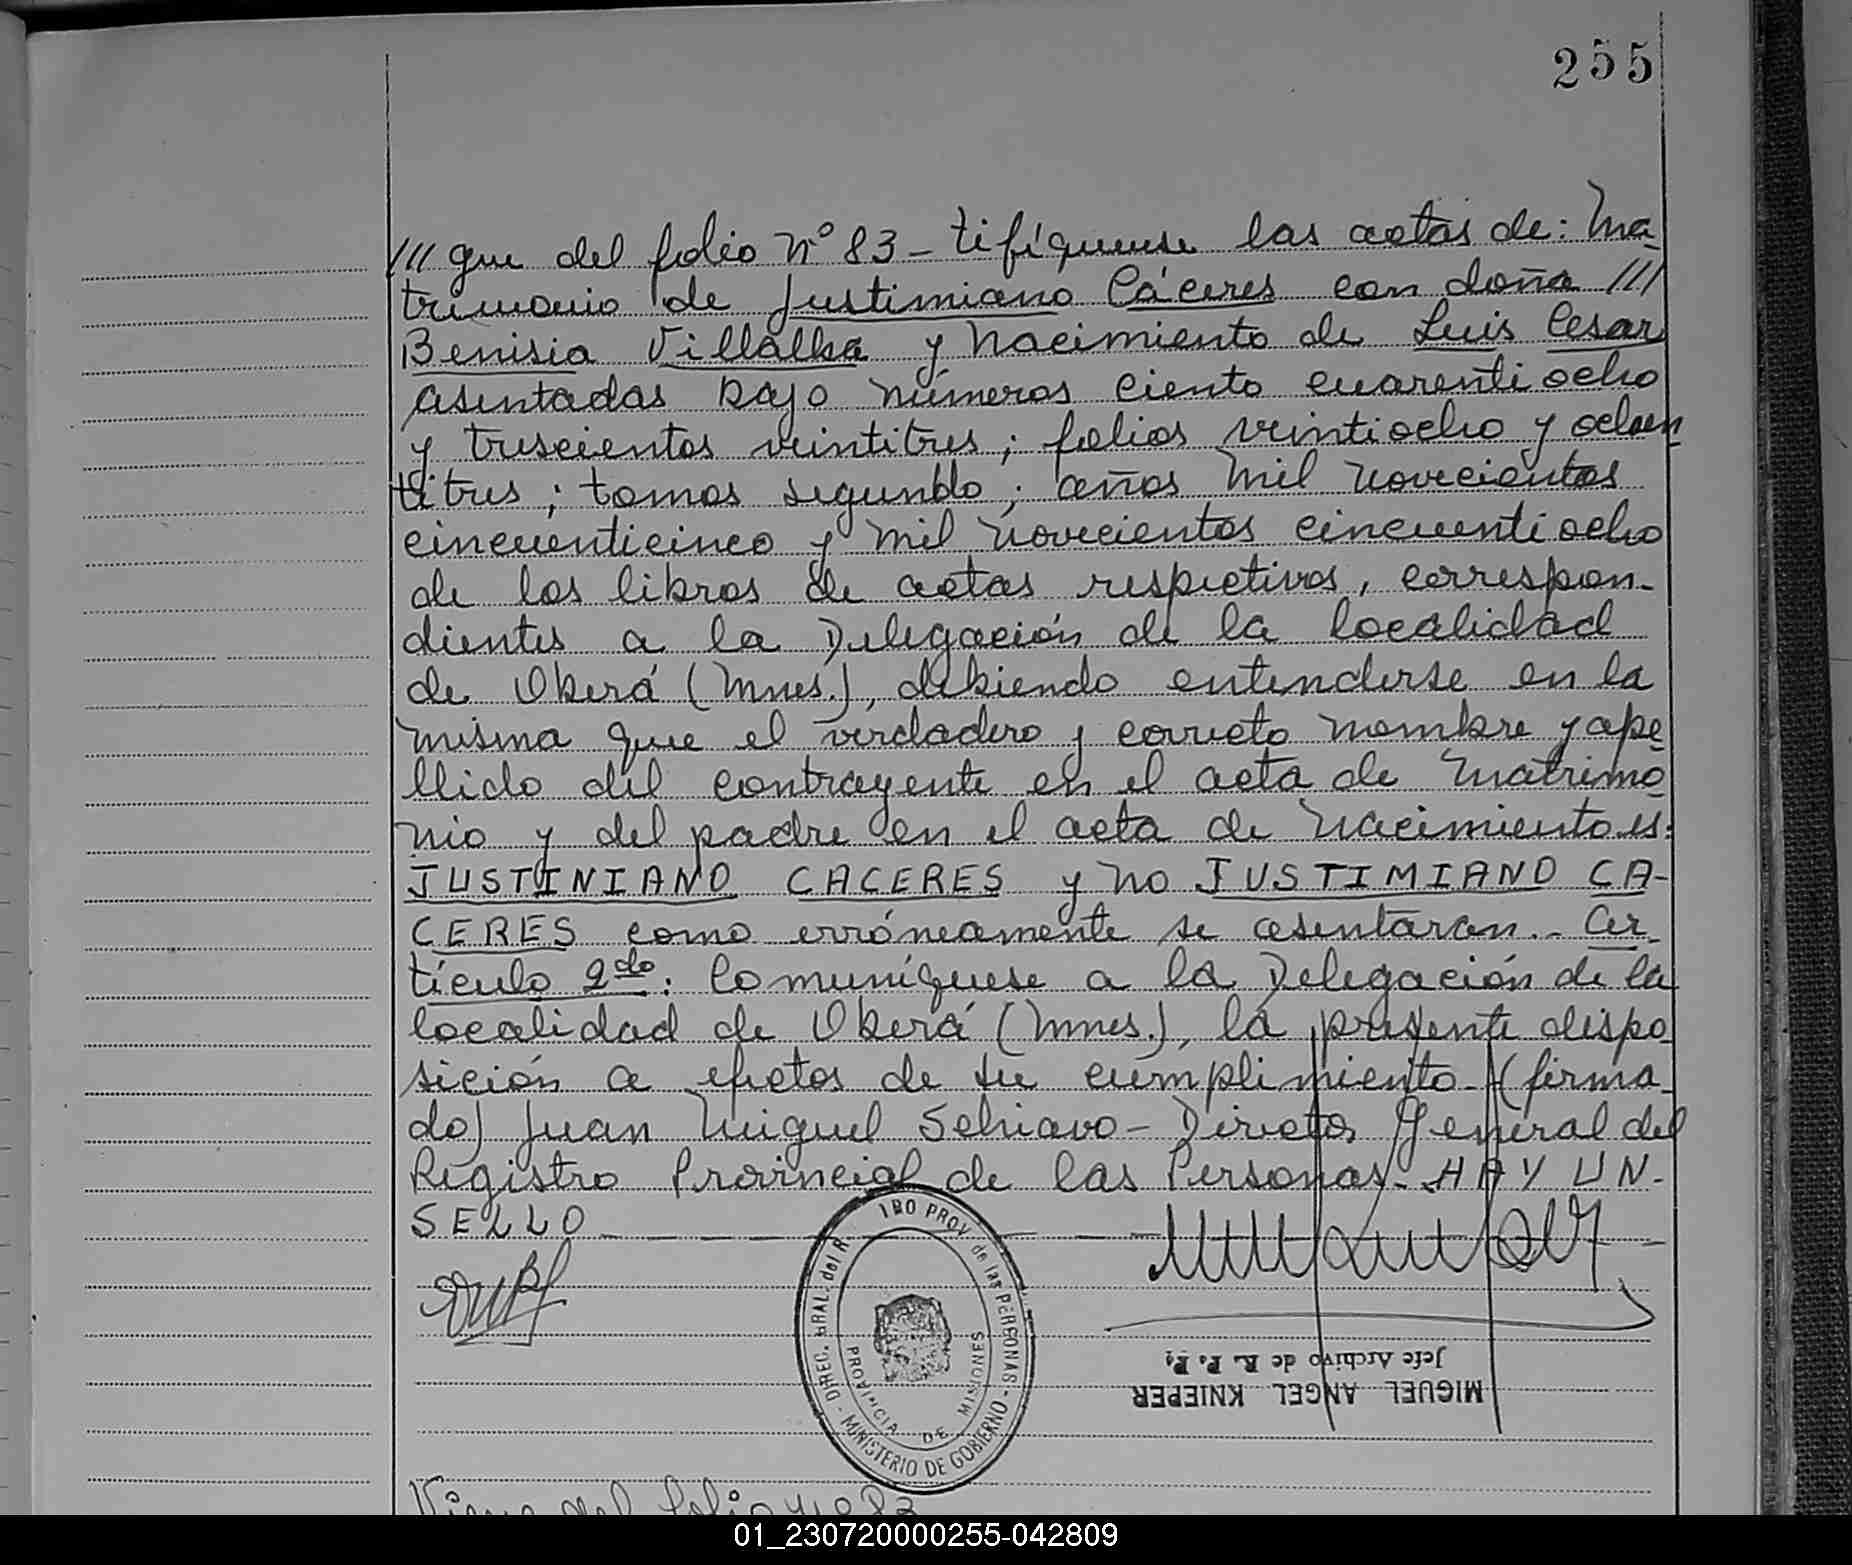 255
/// que del folio Nº 83 - tifíquense las actas de: Ma-
trimonio de Justimiano Cáceres con doña ///
Benisia Villalba y Nacimiento de Luis Cesar
asentadas bajo números ciento cuarentiocho
y trescientos veintitres; folios veintiocho y ochen
titres; tomos segundo; años mil novecientos
cincuenticinco y mil novecientos cincuentiocho
de los libros de actas respectivos, correspon-
dientes a la Delegación de la localidad
de Oberá (Mnes.), debiendo entenderse en la
misma que el verdadero y correcto nombre y ape-
llido del contrayente en el acta de Matrimo-
nio y del padre en el acta de Nacimiento es:
JUSTINIANO CACERES y no JUSTIMIANO CA-
CERES como erróneamente se asentaran.- Ar-
tículo 2do: Comuníquese a la Delegación de la
localidad de Oberá (Mnes.), la presente dispo-
sición a efectos de su cumplimiento - (firma-
do) Juan Miguel Schiavo - Director General del
Registro Provincial de las Personas - HAY UN -
SELLO
DIREC. GRAL. del R. PROV. de las PERSONAS - MINISTERIO DE GOBIERNO -
PROVINCIA DE MISIONES
MIGUEL ANGEL KNIEPER
Jefe Archivo de R. P. P.
Viene del folio Nº 83
01_230720000255-042809